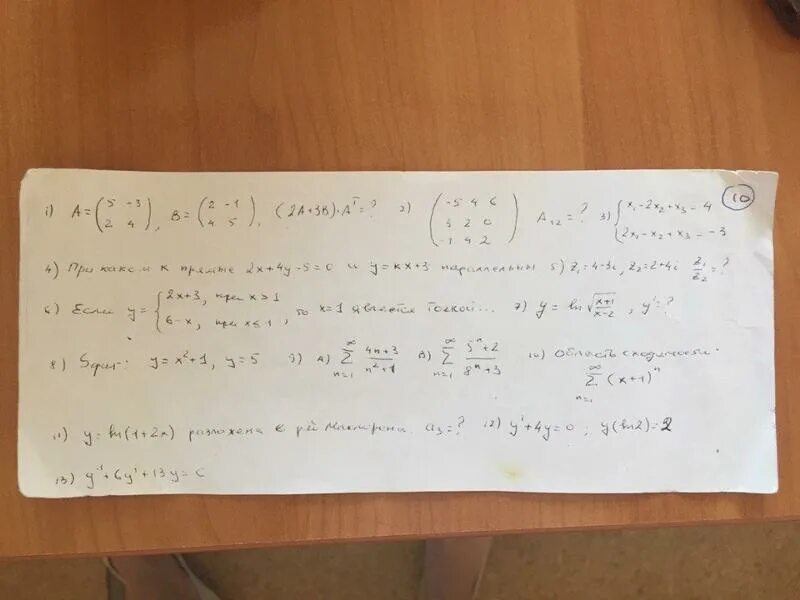 (10)
1) A = (5 -3; 2 4), B = (2 -1; 4 5), (2A+3B)·Aᵀ=? 2) (-5 4 6; 3 2 0; -1 4 2) A₁₂=? 3) {x₁-2x₂+x₃=4; 2x₁-x₂+x₃=-3
4) При каком к прямые 2x+4y-5=0 и y=kx+3 параллельны 5) z₁=4-3i, z₂=2+4i z₁/z₂=?
6) Если y={2x+3, при x>1; 6-x, при x≤1, то x=1 является точкой... 7) y=ln√((x+1)/(x-2)), y'=?
8) Sфиг: y=x²+1, y=5 9) А) ∑ₙ₌₁^∞ (4n+3)/(n²+1) В) ∑ₙ₌₁^∞ (5ⁿ+2)/(8ⁿ+3) 10) Область сходимости: ∑ₙ₌₁^∞ (x+1)ⁿ
11) y=ln(1+2x) разложена в ряд Маклорена. a₃=? 12) y'+4y=0; y(ln2)=2
13) y''+6y'+13y=